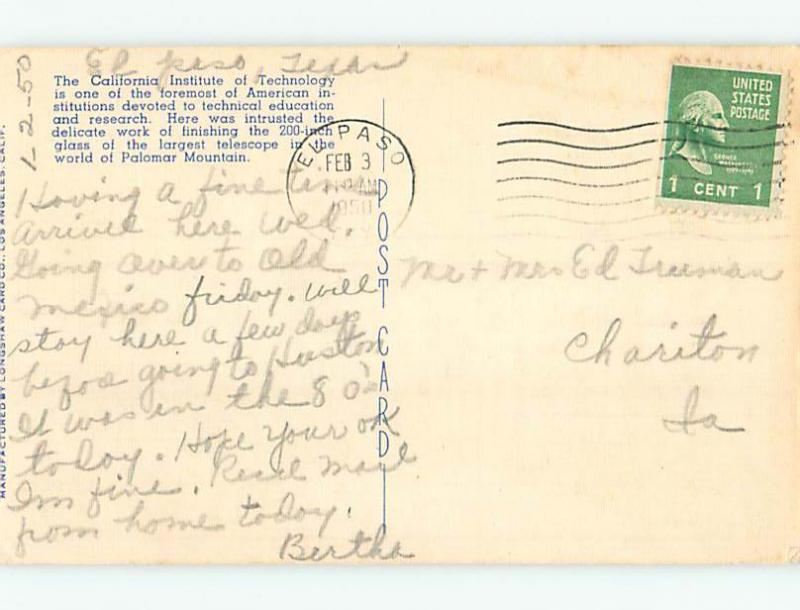 El paso, Texas
1-2-50
The California Institute of Technology
is one of the foremost of American in-
stitutions devoted to technical education
and research. Here was intrusted the
delicate work of finishing the 200-inch
glass of the largest telescope in the
world of Palomar Mountain.
EL PASO
FEB 3
AM
1950
UNITED
STATES
POSTAGE
GEORGE
WASHINGTON
1 CENT 1
Having a fine time
arrived here Wed.
Going over to Old
Mexico friday. will
stay here a few days
befor going to Huston
It was in the 80's
today. Hope your ok
Im fine. Recd mail
from home today.
Bertha
POST CARD
Mr + Mrs Ed Truman
Chariton
Ia
MANUFACTURED BY LONGSHAW CARD CO., LOS ANGELES, CALIF.